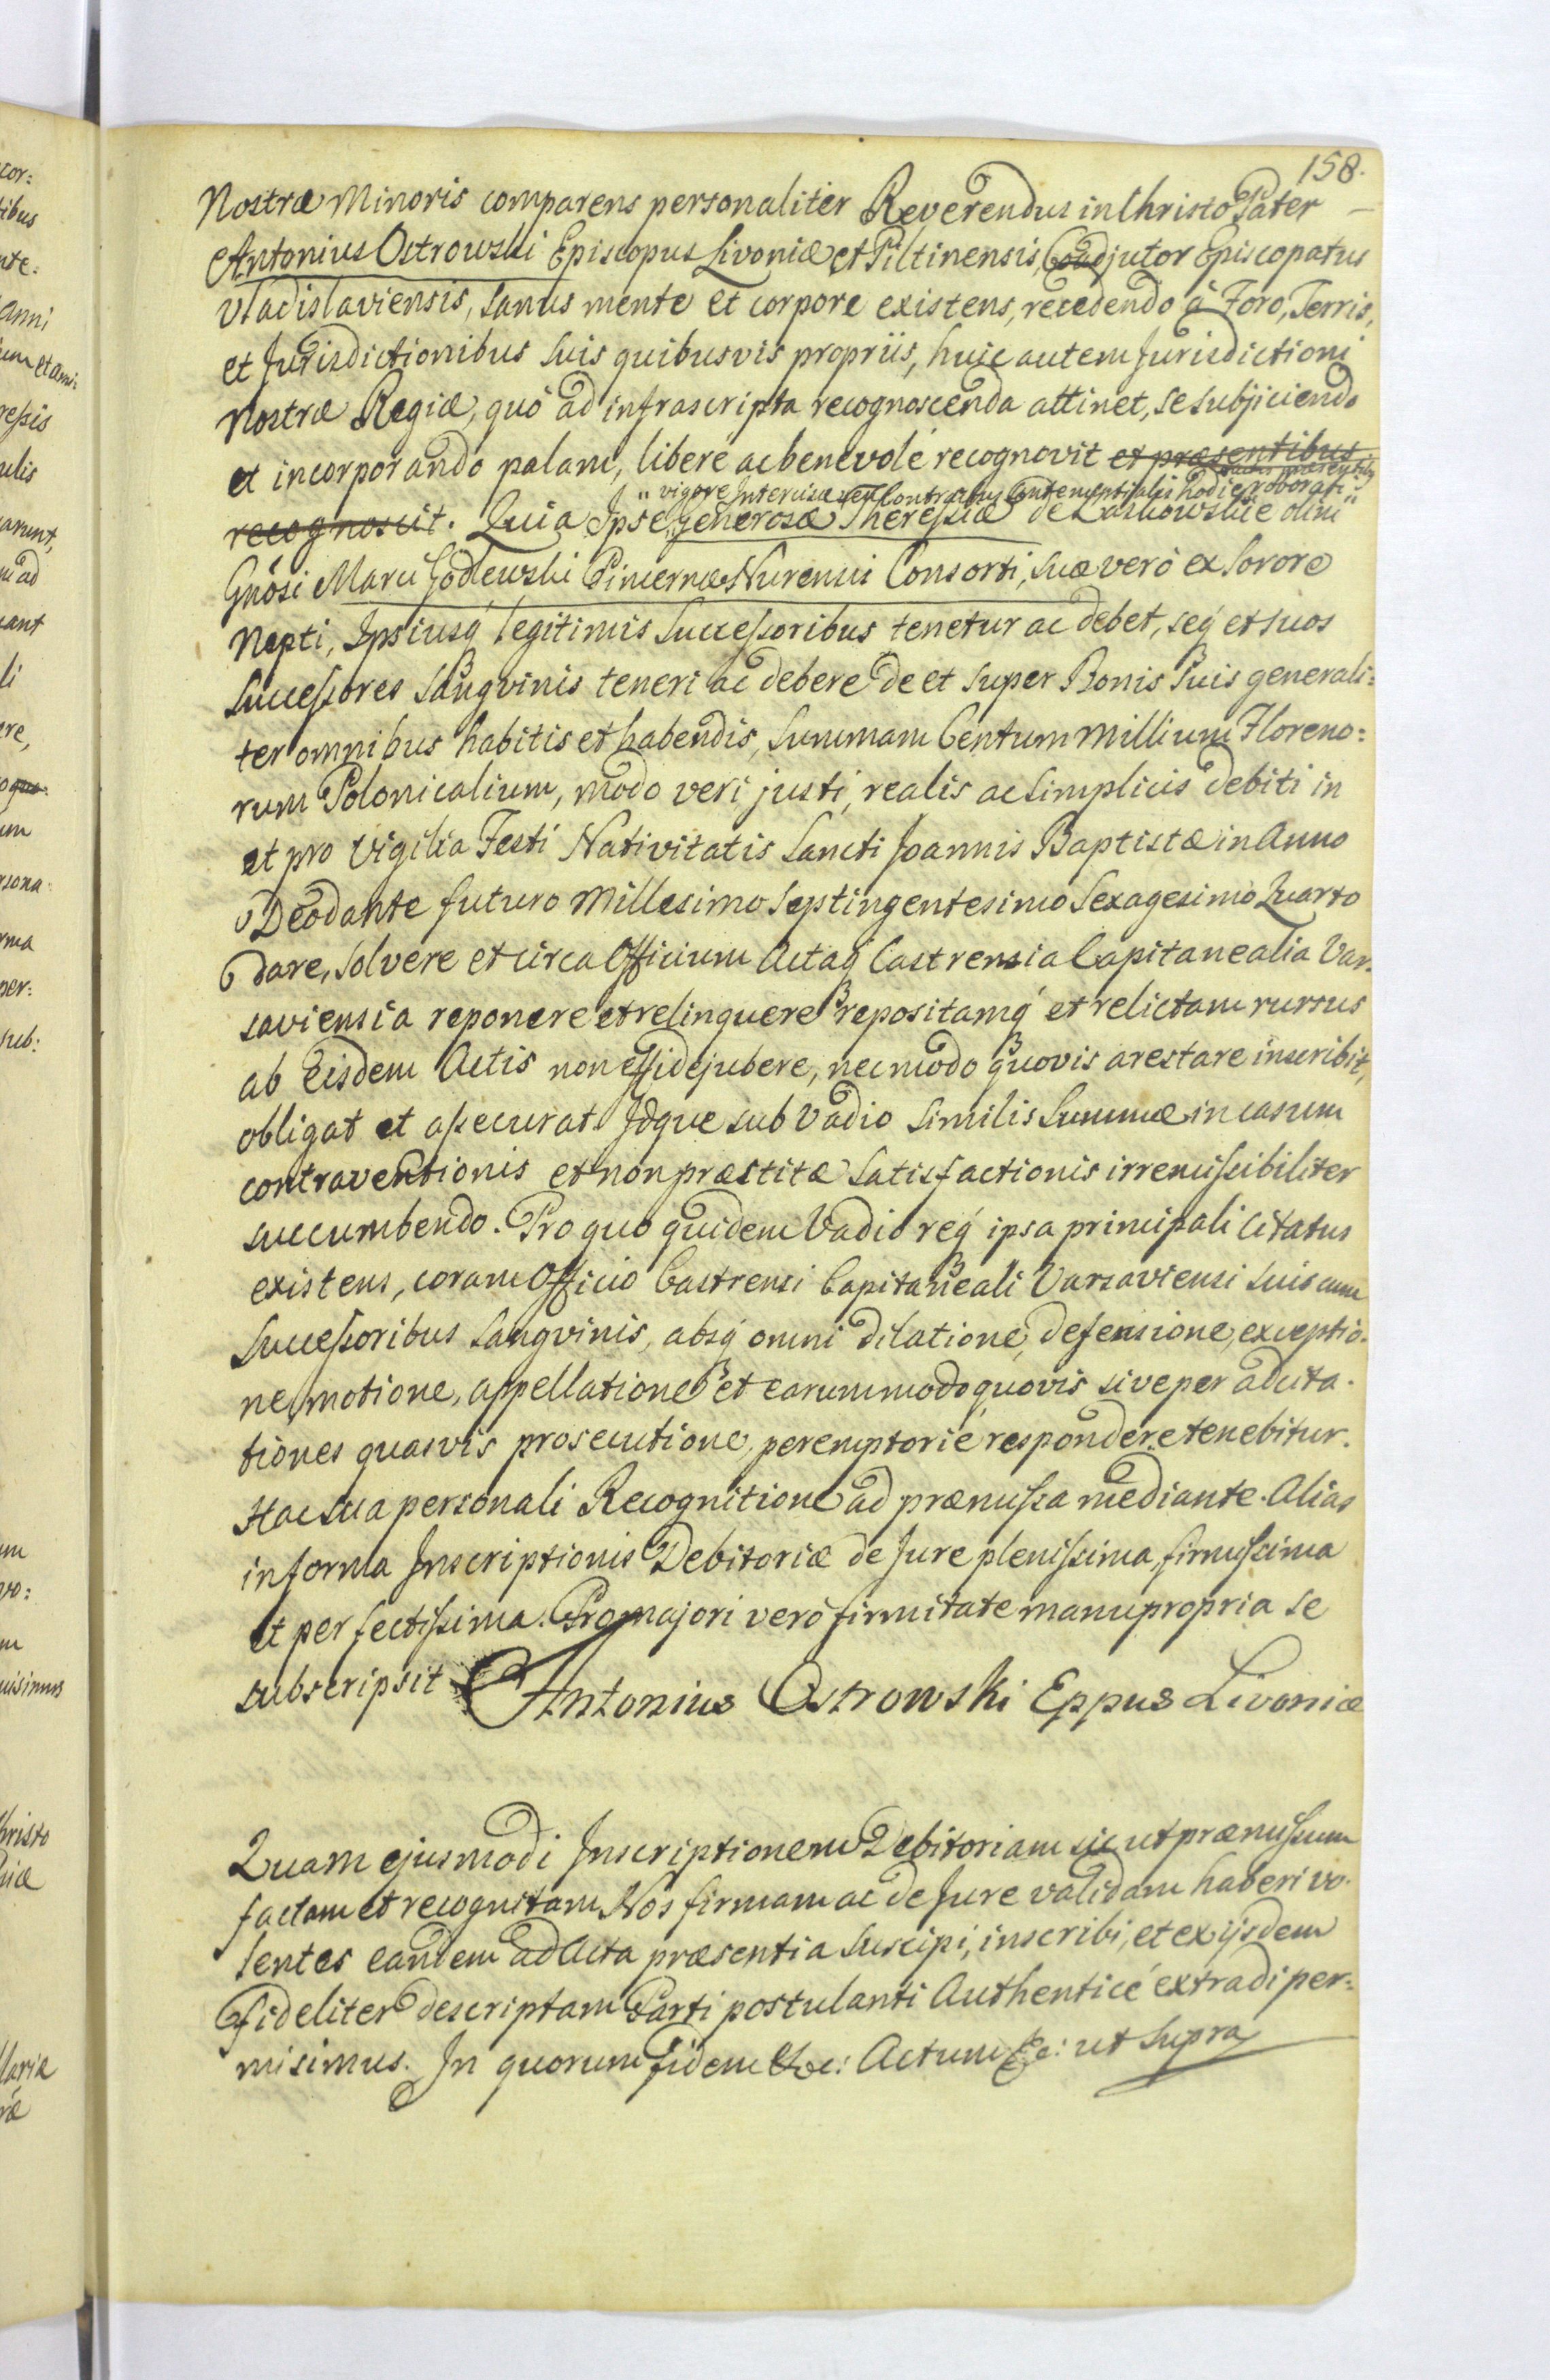 158.
Nostræ Minoris comparens personaliter Reverendus in Christo Pater
Antonius Ostrowski Episcopus Livoniæ et Piltinensis, Coadjutor Episcopatus
Vladislaviensis, sanus mente et corpore existens, recedendo à Foro, Terris,
et Jurisdictionibus suis quibusvis propriis, huic autem Jurisdictioni
Nostræ Regiæ, quò ad infrascripta recognoscenda attinet, se subjiciendo
et incorporando palam, liberè ac benevolè recognovit et præsentibus
" vigore Intercisæ seu Contractus hodie roborati "
recognoscit. Quia Ipse, Generosæ Theressiæ de olim
Gnosi Marci Godlewski Pincernæ Nurensis Consorti, suæ verò ex Sorore
Nepti, Ipsiusq́ legitimis Successoribus tenetur ac debet, seq́ et suos
Successores Sangvinis teneri ac debere de et super Bonis suis generali:
ter omnibus habitis et habendis, Summam Centum Millium Floreno:
rum Polonicalium, modo veri, justi, realis ac simplicis debiti in
et pro Vigilia Festi Nativitatis Sancti Joannis Baptistæ in Anno
Deodante futuro Millesimo Septingentesimo Sexagesimo Quarto
dare, solvere et circa Officium Actaq́ Castrensia Capitanealia Var:
saviensia reponere et relinquere repositamq́ et relictam rursus
ab Eisdem Actis non effidejubere, nec modo quovis arestare inscribit,
obligat et assecurat. Idque sub Vadio similis Summæ in casum
contraventionis et non præstitæ satisfactionis irremissibiliter
succumbendo. Pro quo quidem Vadio req́ ipsa principali citatus
existens, coram Officio Castrensi Capitaneali Varsaviensi suis cum
Successoribus Sangvinis, absq́ omni dilatione, defensione, exceptio:
ne, motione, appellatione et earum modo quovis sive per adcita:
tiones quasvis prosecutione, peremptoriè respondere tenebitur.
Hac sua personali Recognitione ad præmissa mediante. Alias
in forma Inscriptionis Debitoriæ de Jure plenissima, firmissima
et perfectissima. Pro majori verò firmitate manu propria se
subscripsit Antonius Ostrowski Eppus Livoniæ
Quam ejusmodi Inscriptionem Debitoriam sic ut præmissum
factam et recognitam Nos firmam ac de Jure validam haberi vo:
lentes eandem ad Acta præsentia suscipi, inscribi, et ex ijsdem
fideliter descriptam Parti postulanti Authenticè extradi per:
misimus. In quorum fidem &c: Actum &c: ut supra